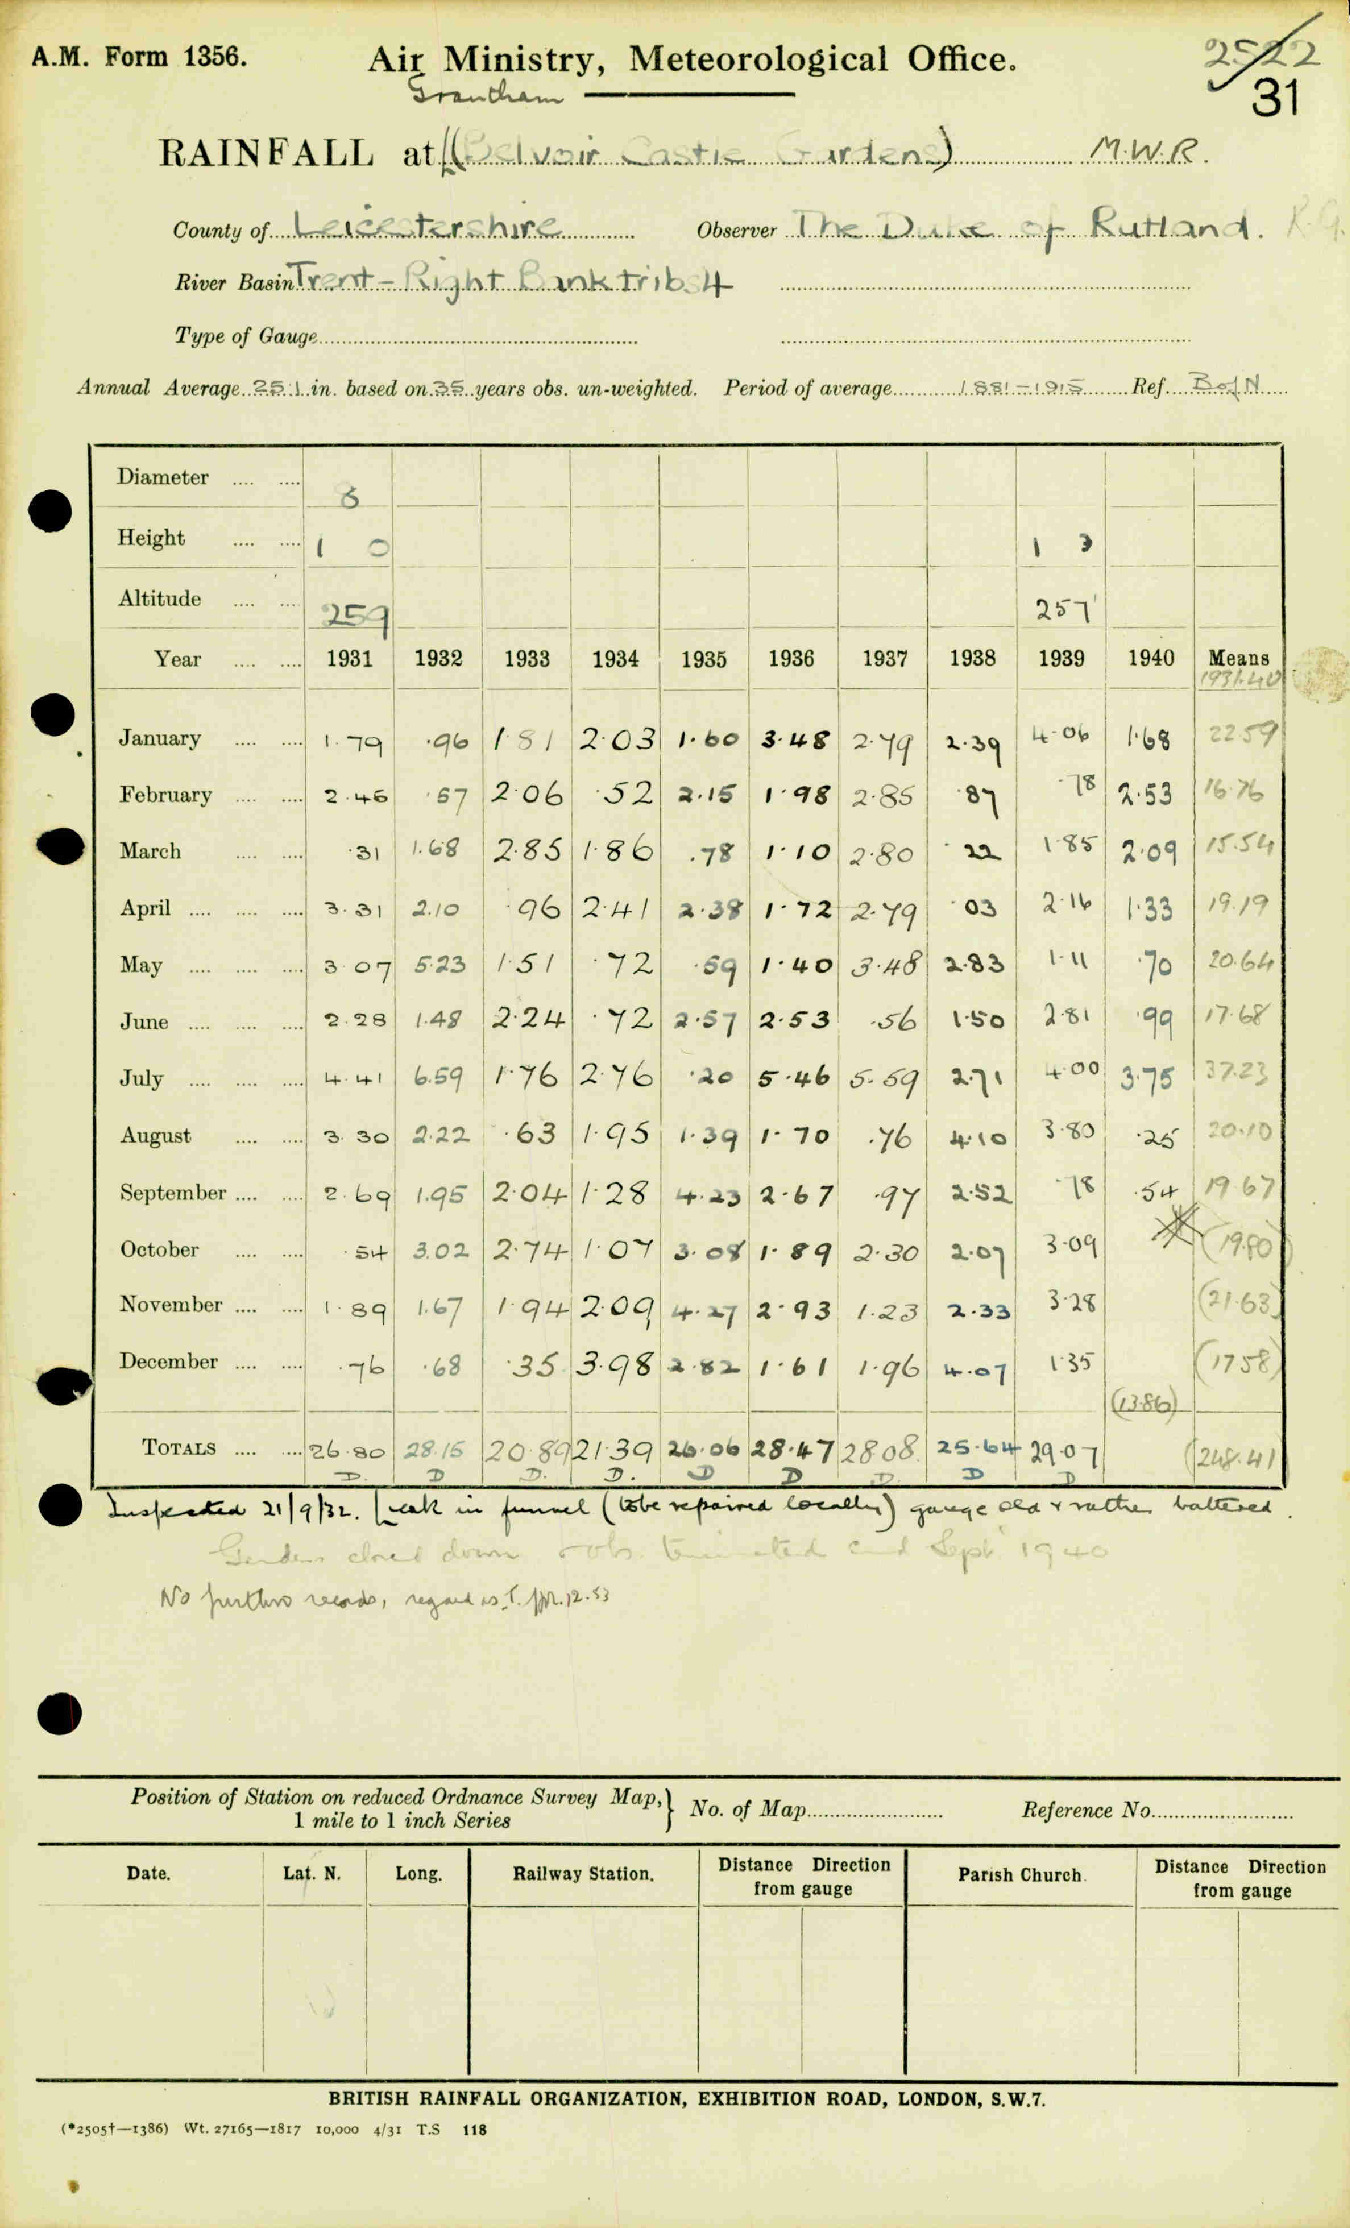 A.M. Form 1356. Air Ministry, Meteorological Office. 2522
31
Grantham
RAINFALL at [(Belvoir Castle Gardens) M.W.R.
County of Leicestershire Observer The Duke of Rutland. K.G.
River Basin Trent - Right Bank tribs 4
Type of Gauge
Annual Average 25.1 in. based on 35 years obs. un-weighted. Period of average 1881-1915 Ref. B of N
Diameter .... .... 8
Height .... .... 1 0 1 3
Altitude .... .... 259 257'
Year .... .... 1931 1932 1933 1934 1935 1936 1937 1938 1939 1940 Means
1931-40
January .... .... 1.79 .96 1.81 2.03 1.60 3.48 2.79 2.39 4.06 1.68 22.59
February .... .... 2.46 .57 2.06 .52 2.15 1.98 2.85 .87 .78 2.53 16.76
March .... .... .31 1.68 2.85 1.86 .78 1.10 2.80 .22 1.85 2.09 15.54
April .... .... .... 3.31 2.10 .96 2.41 2.38 1.72 2.79 .03 2.16 1.33 19.19
May .... .... .... 3.07 5.23 1.51 .72 .59 1.40 3.48 2.83 1.11 .70 20.64
June .... .... .... 2.28 1.48 2.24 .72 2.57 2.53 .56 1.50 2.81 .99 17.68
July .... .... .... 4.41 6.59 1.76 2.76 .20 5.46 5.59 2.71 4.00 3.75 37.23
August .... .... 3.30 2.22 .63 1.95 1.39 1.70 .76 4.10 3.80 .25 20.10
September .... .... 2.69 1.95 2.04 1.28 4.23 2.67 .97 2.52 .78 .54 19.67
October .... .... .54 3.02 2.74 1.07 3.08 1.89 2.30 2.07 3.09 (19.80)
November .... .... 1.89 1.67 1.94 2.09 4.27 2.93 1.23 2.33 3.28 (21.63)
December .... .... .76 .68 .35 3.98 2.82 1.61 1.96 4.07 1.35 (17.58)
(13.86)
TOTALS .... .... 26.80 28.15 20.89 21.39 26.06 28.47 28.08 25.64 29.07 (248.41)
D. D D. D. D D D. D D
Inspected 21/9/32. Leak in funnel (to be repaired locally) gauge old & rather battered.
Gardens closed down & obs. terminated end Sept 1940
No further records, regard as T. 12.53
Position of Station on reduced Ordnance Survey Map, } No. of Map Reference No.
1 mile to 1 inch Series
Date. Lat. N. Long. Railway Station. Distance Direction from gauge Parish Church. Distance Direction from gauge
BRITISH RAINFALL ORGANIZATION, EXHIBITION ROAD, LONDON, S.W.7.
(*2505†—1386) Wt. 27165—1817 10,000 4/31 T.S 118